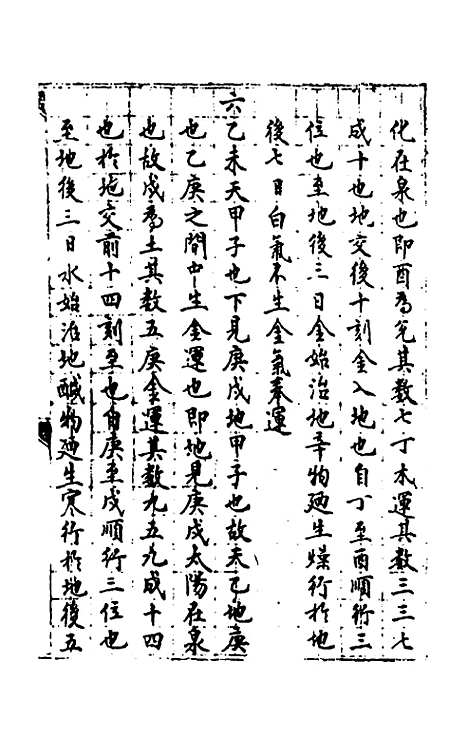 化在泉也即酉爲兊其数七丁木運其数三三七
成十也地交後十刻金入地也自丁至酉順行三
位也至地後三日金始治地辛物廼生燥行於地
後七日白氣不生金氣奉運
六乙未天甲子也下見庚戌地甲子也故未乙地庚
也乙庚之間中生金運也即地見庚戌太陽在泉
也故戌爲土其数五庚金運其数九五九成十四
也於地交前十四刻至也自庚至戌順行三位也
至地後三日水始治地鹹物廼生寒行於地後五